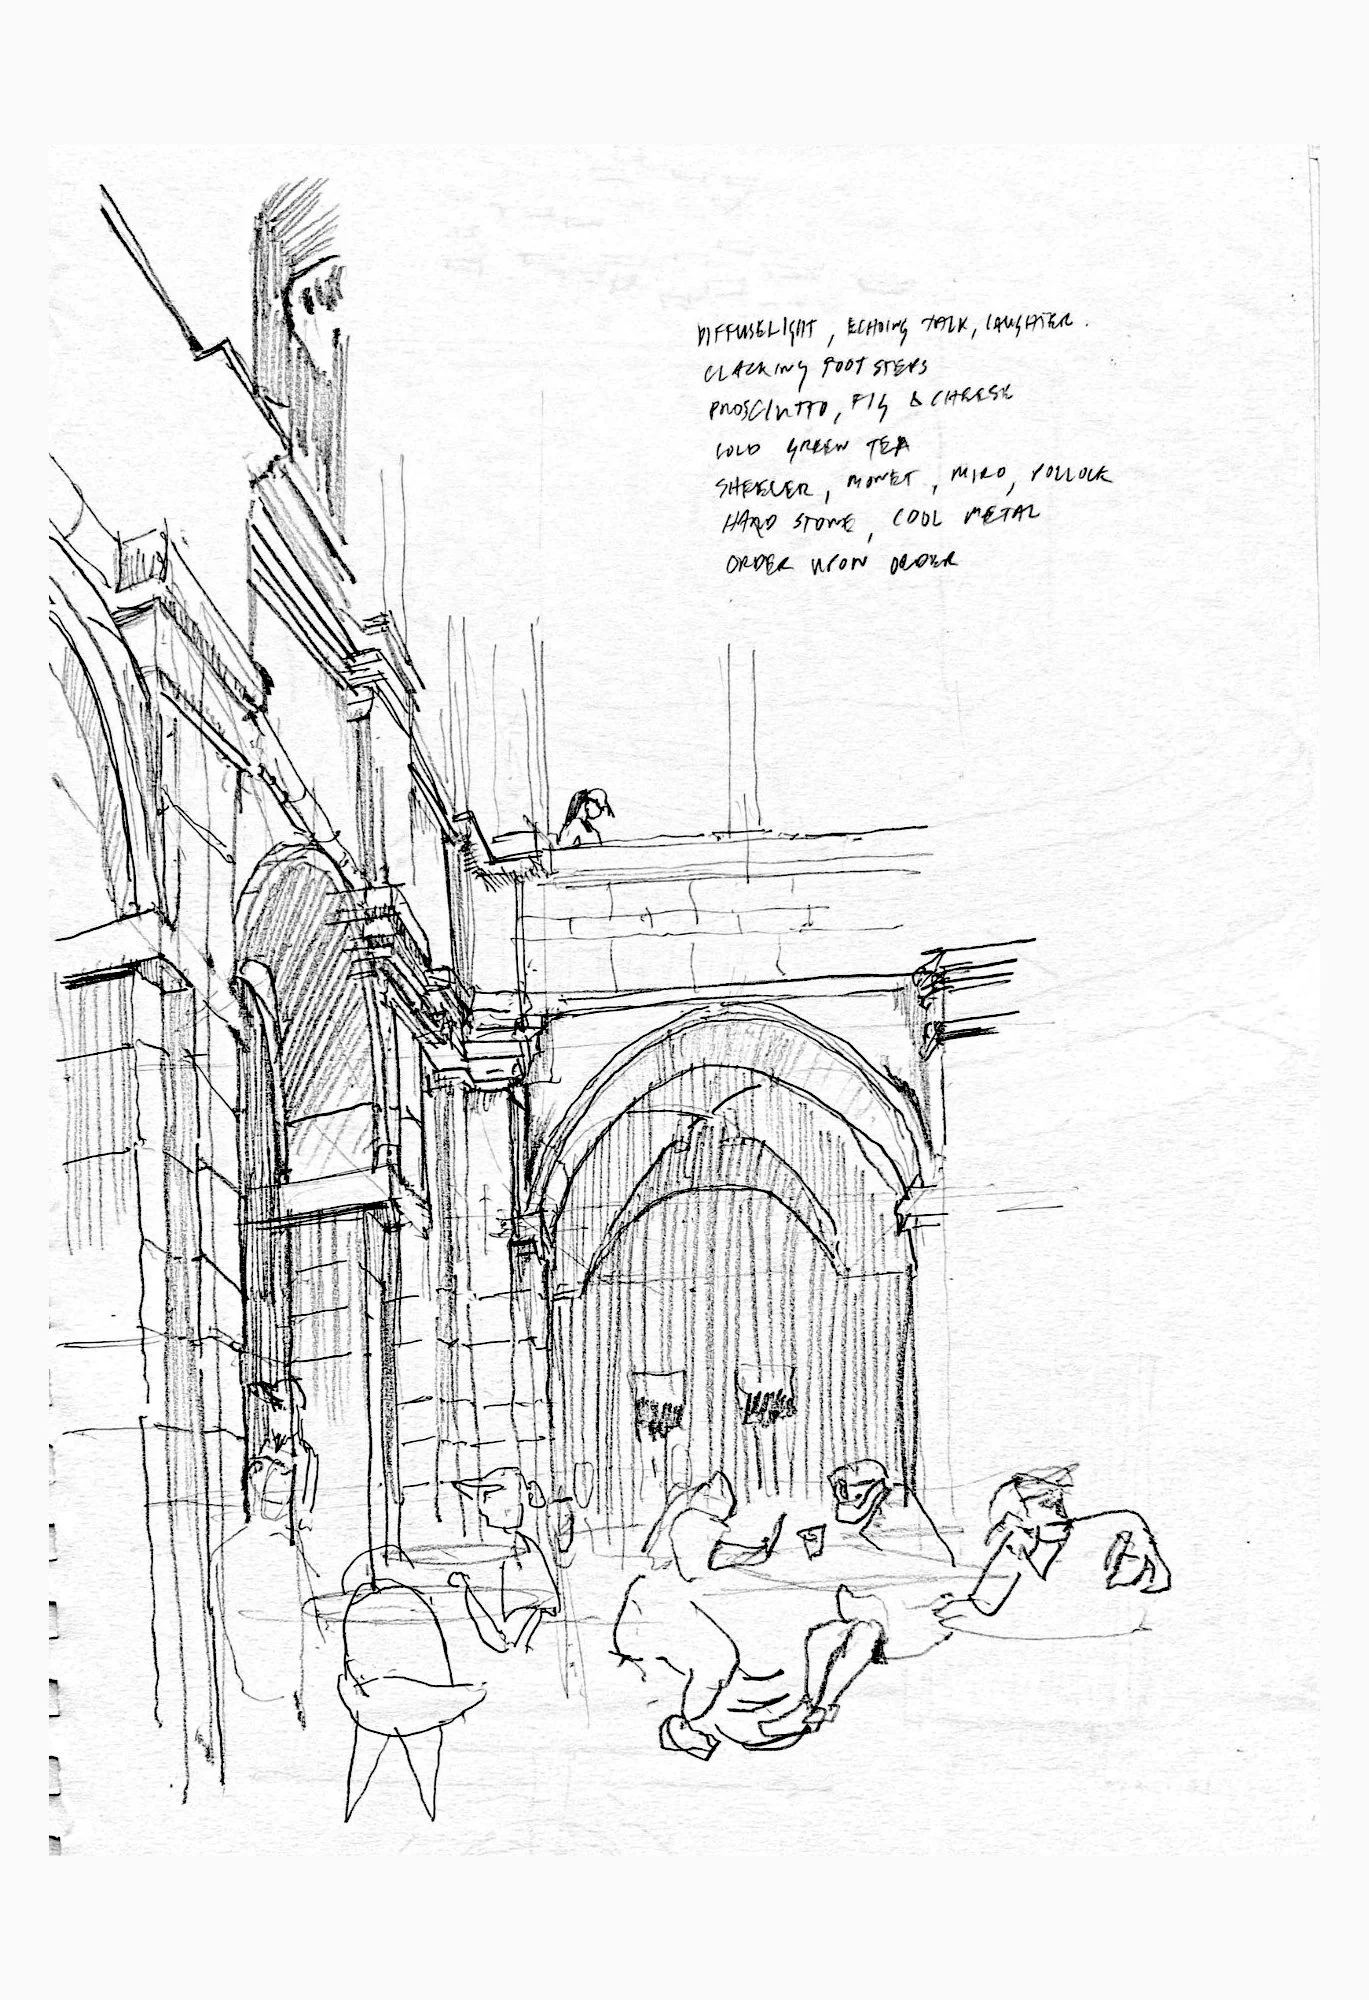 DIFFUSE LIGHT, ECHOING TALK, LAUGHTER.
CLACKING FOOTSTEPS
PROSCIUTTO, FIG & CHEESE
COLD GREEN TEA
SHEELER, MONET, MIRO, POLLOCK
HARD STONE, COOL METAL
ORDER UPON ORDER